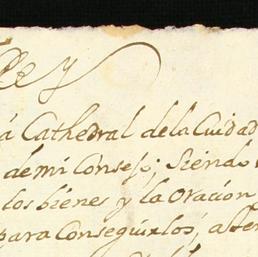 Rey
á Cathedral de la Cuidad
de mi Consejo; Siendo
los biénes y la Oración
para Conseguirlos, aten